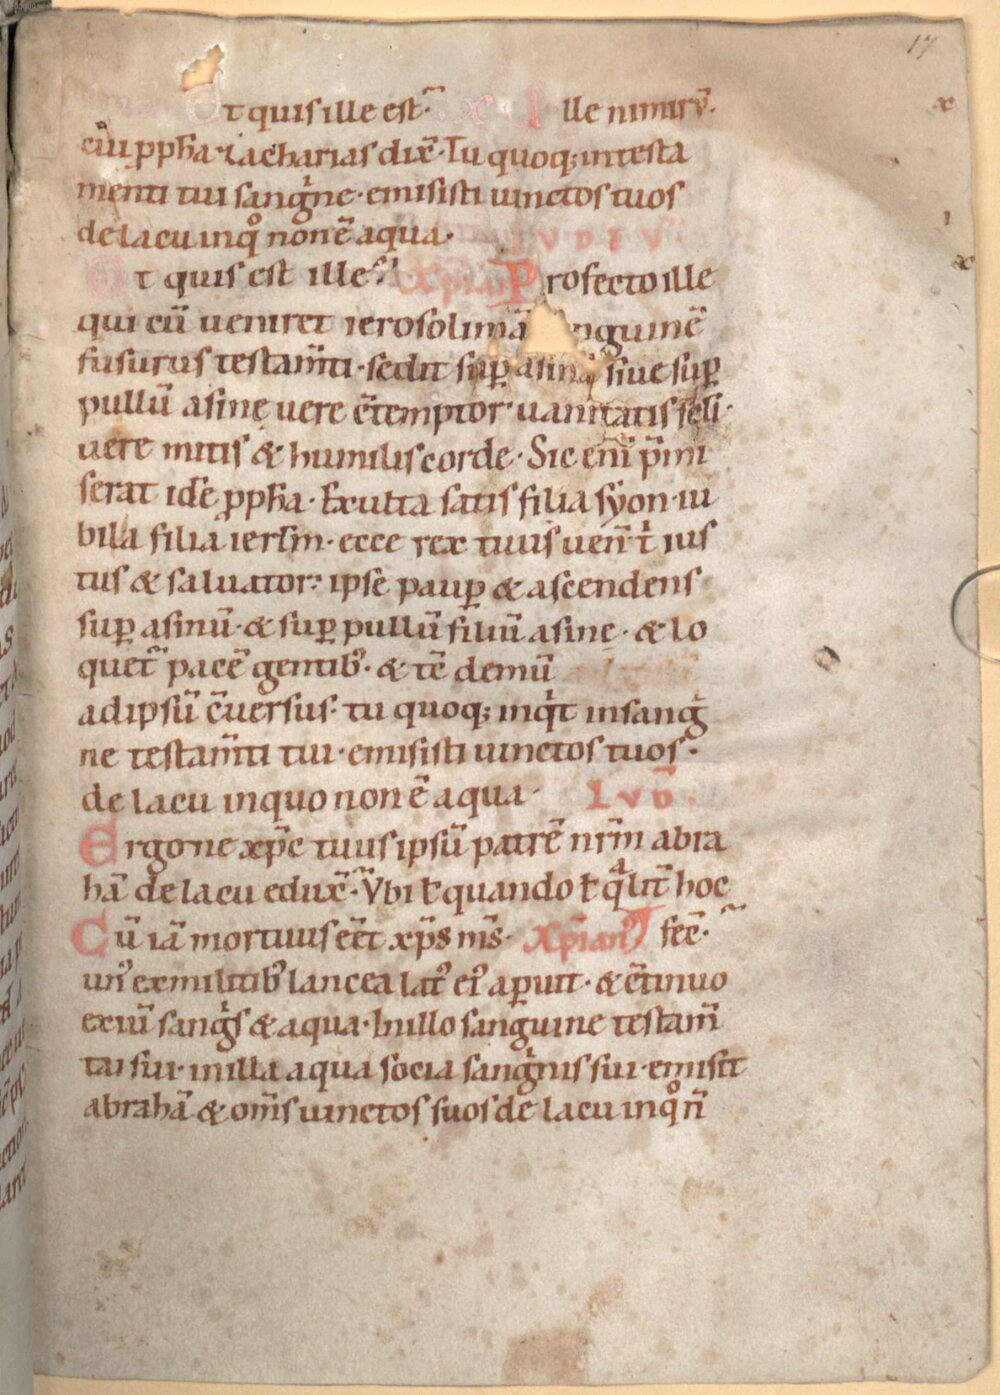 17
Et quis ille est· x I lle nimirū·
cui ꝓph̄a zacharias dix̄· Tu quoq; intesta
menti tui sangⁱne· emisisti uinctos tuos
de lacu inqͦ non ē aqua· IVDEVS·
Et quis est ille· Xp̄ian Profecto ille
qui cū ueniret ierosolimā nguinē
fusurus testam̄ti· sedit suꝑ asinā siue suꝑ
pullū asinę uere c̄temptor uanitatis sc̄li·
uere mitis & humilis corde· Sic eni͂ p̄mi
serat idē ꝓph̄a· Exulta satis filia syon· iu
bila filia ierl̄m· ecce rex tuus uen̄t tⁱ ius
tus & saluator: ipsē pauꝑ & ascendens
suꝑ asinū· & suꝑ pullū filiū asinę· & lo
quet᷑ pacē gentib᷒· & tē demū
ad ipsū c̄uersus· tu quoq; inqⁱt in sangⁱ
ne testam̄ti tui· emisisti uinctos tuos·
de lacu in quo non ē aqua· IVD̄·
Ergone xp̄c tuus ipsū patrē nr̄m abra
hā de lacu edux̄· Vbi ł quando ł qͣlit᷑ hoc
Cū iā mortuus eēt xp̄s ms̄· Xp̄ian᷒ fec̄·
un᷒ ex militib᷒ lancea lat᷒ ei᷒ aꝑuit· & c̄tinuo
exiuī sangⁱs & aqua· In illo sanguine testam̄
tai sui· in illa aqua socia sangⁱnis sui· emisit
abrahā & om̄s uinctos suos de lacu in qͦ n̄